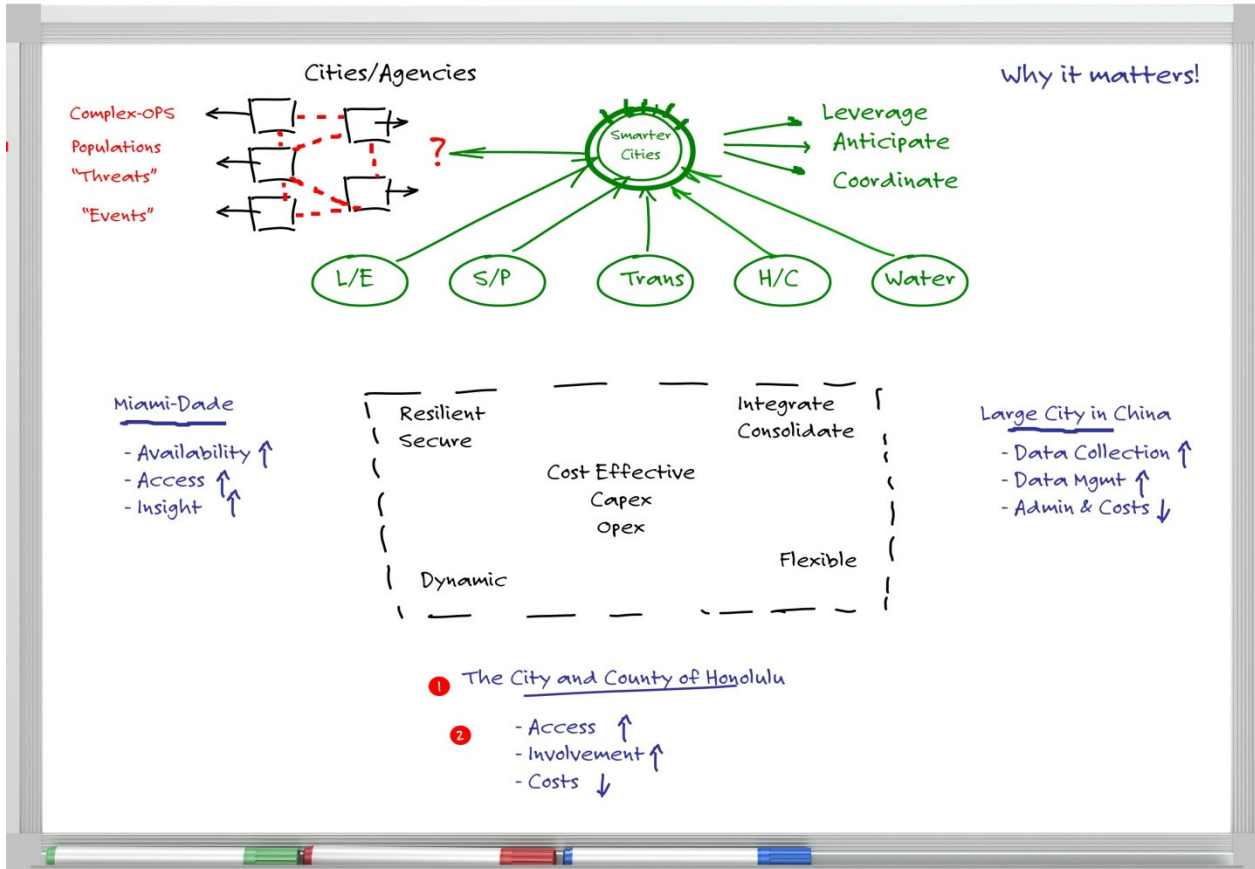 Cities/Agencies
Why it matters!
Complex-OPS
Populations
"Threats"
"Events"
?
Smarter
Cities
Leverage
Anticipate
Coordinate
L/E
S/P
Trans
H/C
Water
Miami-Dade
- Availability ↑
- Access ↑
- Insight ↑
Resilient
Secure
Integrate
Consolidate
Cost Effective
Capex
Opex
Dynamic
Flexible
Large City in China
- Data Collection ↑
- Data Mgmt ↑
- Admin & Costs ↓
1 The City and County of Honolulu
2 - Access ↑
- Involvement ↑
- Costs ↓